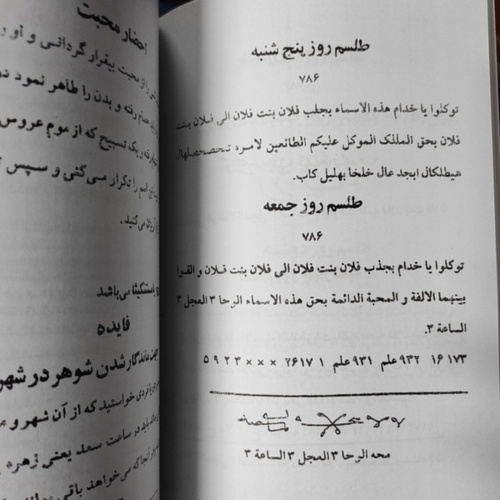 طلسم روز پنج شنبه
۷۸۶
توکلوا یا خدام هذه الاسماء بجلب فلان بنت فلان الی فلان بنت
فلان بحق الملک الموکل علیکم الطائعین لامره تحصحصلهال
هیطلکال ابجد عال خلخا بهلیل کاب.
طلسم روز جمعه
۷۸۶
توکلوا یا خدام بجذب فلان بنت فلان الی فلان بنت فلان و القوا
بینهما الالفة و المحبة الدائمة بحق هذه الاسماء الرحا ۳ العجل ۳
الساعة ۳.
۱۷۳ ۱۶ ۹۳۲ علم ۹۳۱ علم ۱ ۲۶۱۷ × × × ۳ ۲ ۹ ۵
محه الرحا ۳ العجل ۳ الساعة ۳
احضار محبت
از محبت بیقرار گردانی و او را
رفته و بدن را طاهر نمود
یک تسبیح که از موم عروس
این اسم را تکرار می‌کنی و سپس
می‌کنید.
می‌باشد
فایده
جهت ماندگار شدن شوهر در شهر
خواستید که از آن شهر و
باید در ساعت سعد یعنی زهره
که می‌خواهد باقی بماند